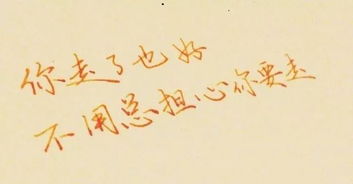 你走了也好
不用总担心你要走